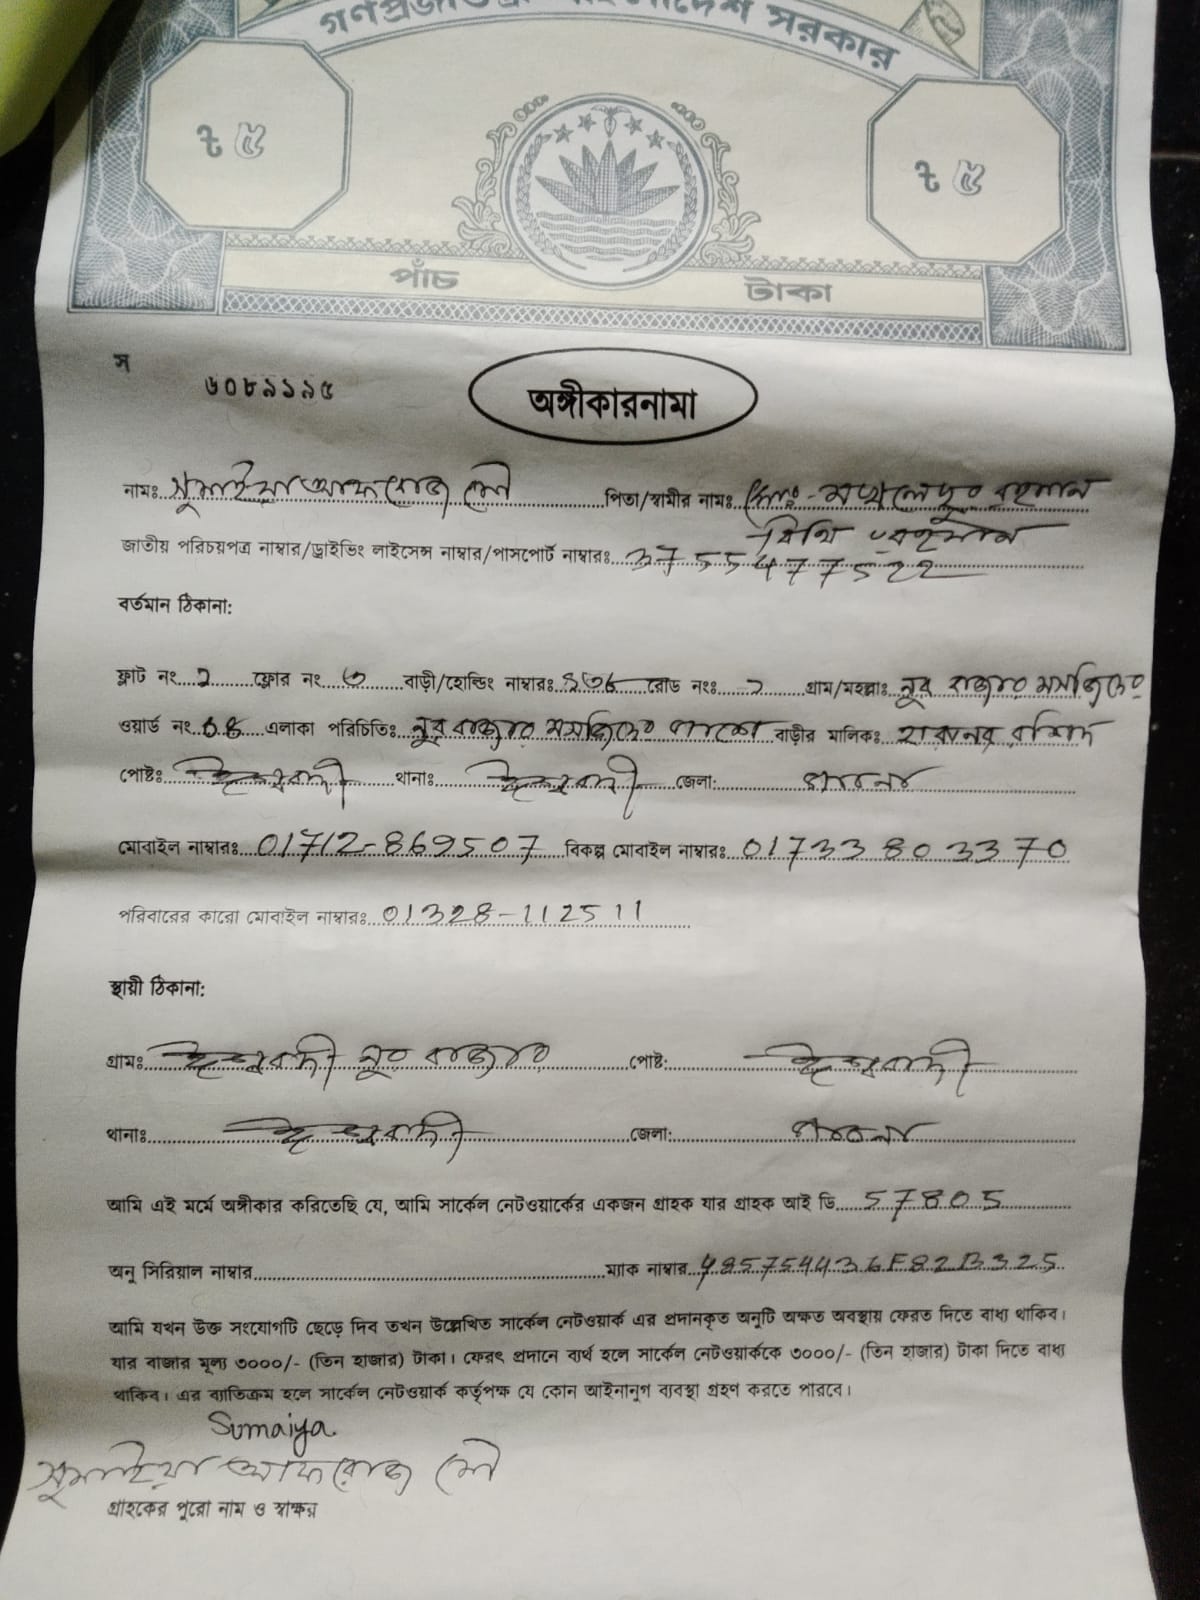 গণপ্রজাতন্ত্রী বাংলাদেশ সরকার
৳ ৫ ৳ ৫
পাঁচ টাকা
স
৬০৮৯১৯৫
অঙ্গীকারনামা
নামঃ সুমাইয়া আফরোজ মৌ পিতা/স্বামীর নামঃ মোঃ- মখলেদুর রহমান
রহমান
জাতীয় পরিচয়পত্র নাম্বার/ড্রাইভিং লাইসেন্স নাম্বার/পাসপোর্ট নাম্বারঃ 3755477522
বর্তমান ঠিকানা:
ফ্লাট নং ২ ফ্লোর নং ৩ বাড়ী/হোল্ডিং নাম্বারঃ রোড নংঃ ২ গ্রাম/মহল্লাঃ নূর বাজার মসজিদের
ওয়ার্ড নং এলাকা পরিচিতিঃ নূর বাজার মসজিদের পাশে বাড়ীর মালিকঃ হারুনর রশিদ
পোষ্টঃ ঈশ্বরদী থানাঃ ঈশ্বরদী জেলা: পাবনা
মোবাইল নাম্বারঃ 01712-869507 বিকল্প মোবাইল নাম্বারঃ 01733803370
পরিবারের কারো মোবাইল নাম্বারঃ 01328-112511
স্থায়ী ঠিকানা:
গ্রামঃ ঈশ্বরদী নূর বাজার পোষ্ট: ঈশ্বরদী
থানাঃ ঈশ্বরদী জেলা: পাবনা
আমি এই মর্মে অঙ্গীকার করিতেছি যে, আমি সার্কেল নেটওয়ার্কের একজন গ্রাহক যার গ্রাহক আই ডি 57805
অনু সিরিয়াল নাম্বার ম্যাক নাম্বার 485754436F82B325
আমি যখন উক্ত সংযোগটি ছেড়ে দিব তখন উল্লেখিত সার্কেল নেটওয়ার্ক এর প্রদানকৃত অনুটি অক্ষত অবস্থায় ফেরত দিতে বাধ্য থাকিব।
যার বাজার মূল্য ৩০০০/- (তিন হাজার) টাকা। ফেরৎ প্রদানে ব্যর্থ হলে সার্কেল নেটওয়ার্ককে ৩০০০/- (তিন হাজার) টাকা দিতে বাধ্য
থাকিব। এর ব্যতিক্রম হলে সার্কেল নেটওয়ার্ক কর্তৃপক্ষ যে কোন আইনানুগ ব্যবস্থা গ্রহণ করতে পারবে।
Sumaiya
সুমাইয়া আফরোজ মৌ
গ্রাহকের পুরো নাম ও স্বাক্ষর